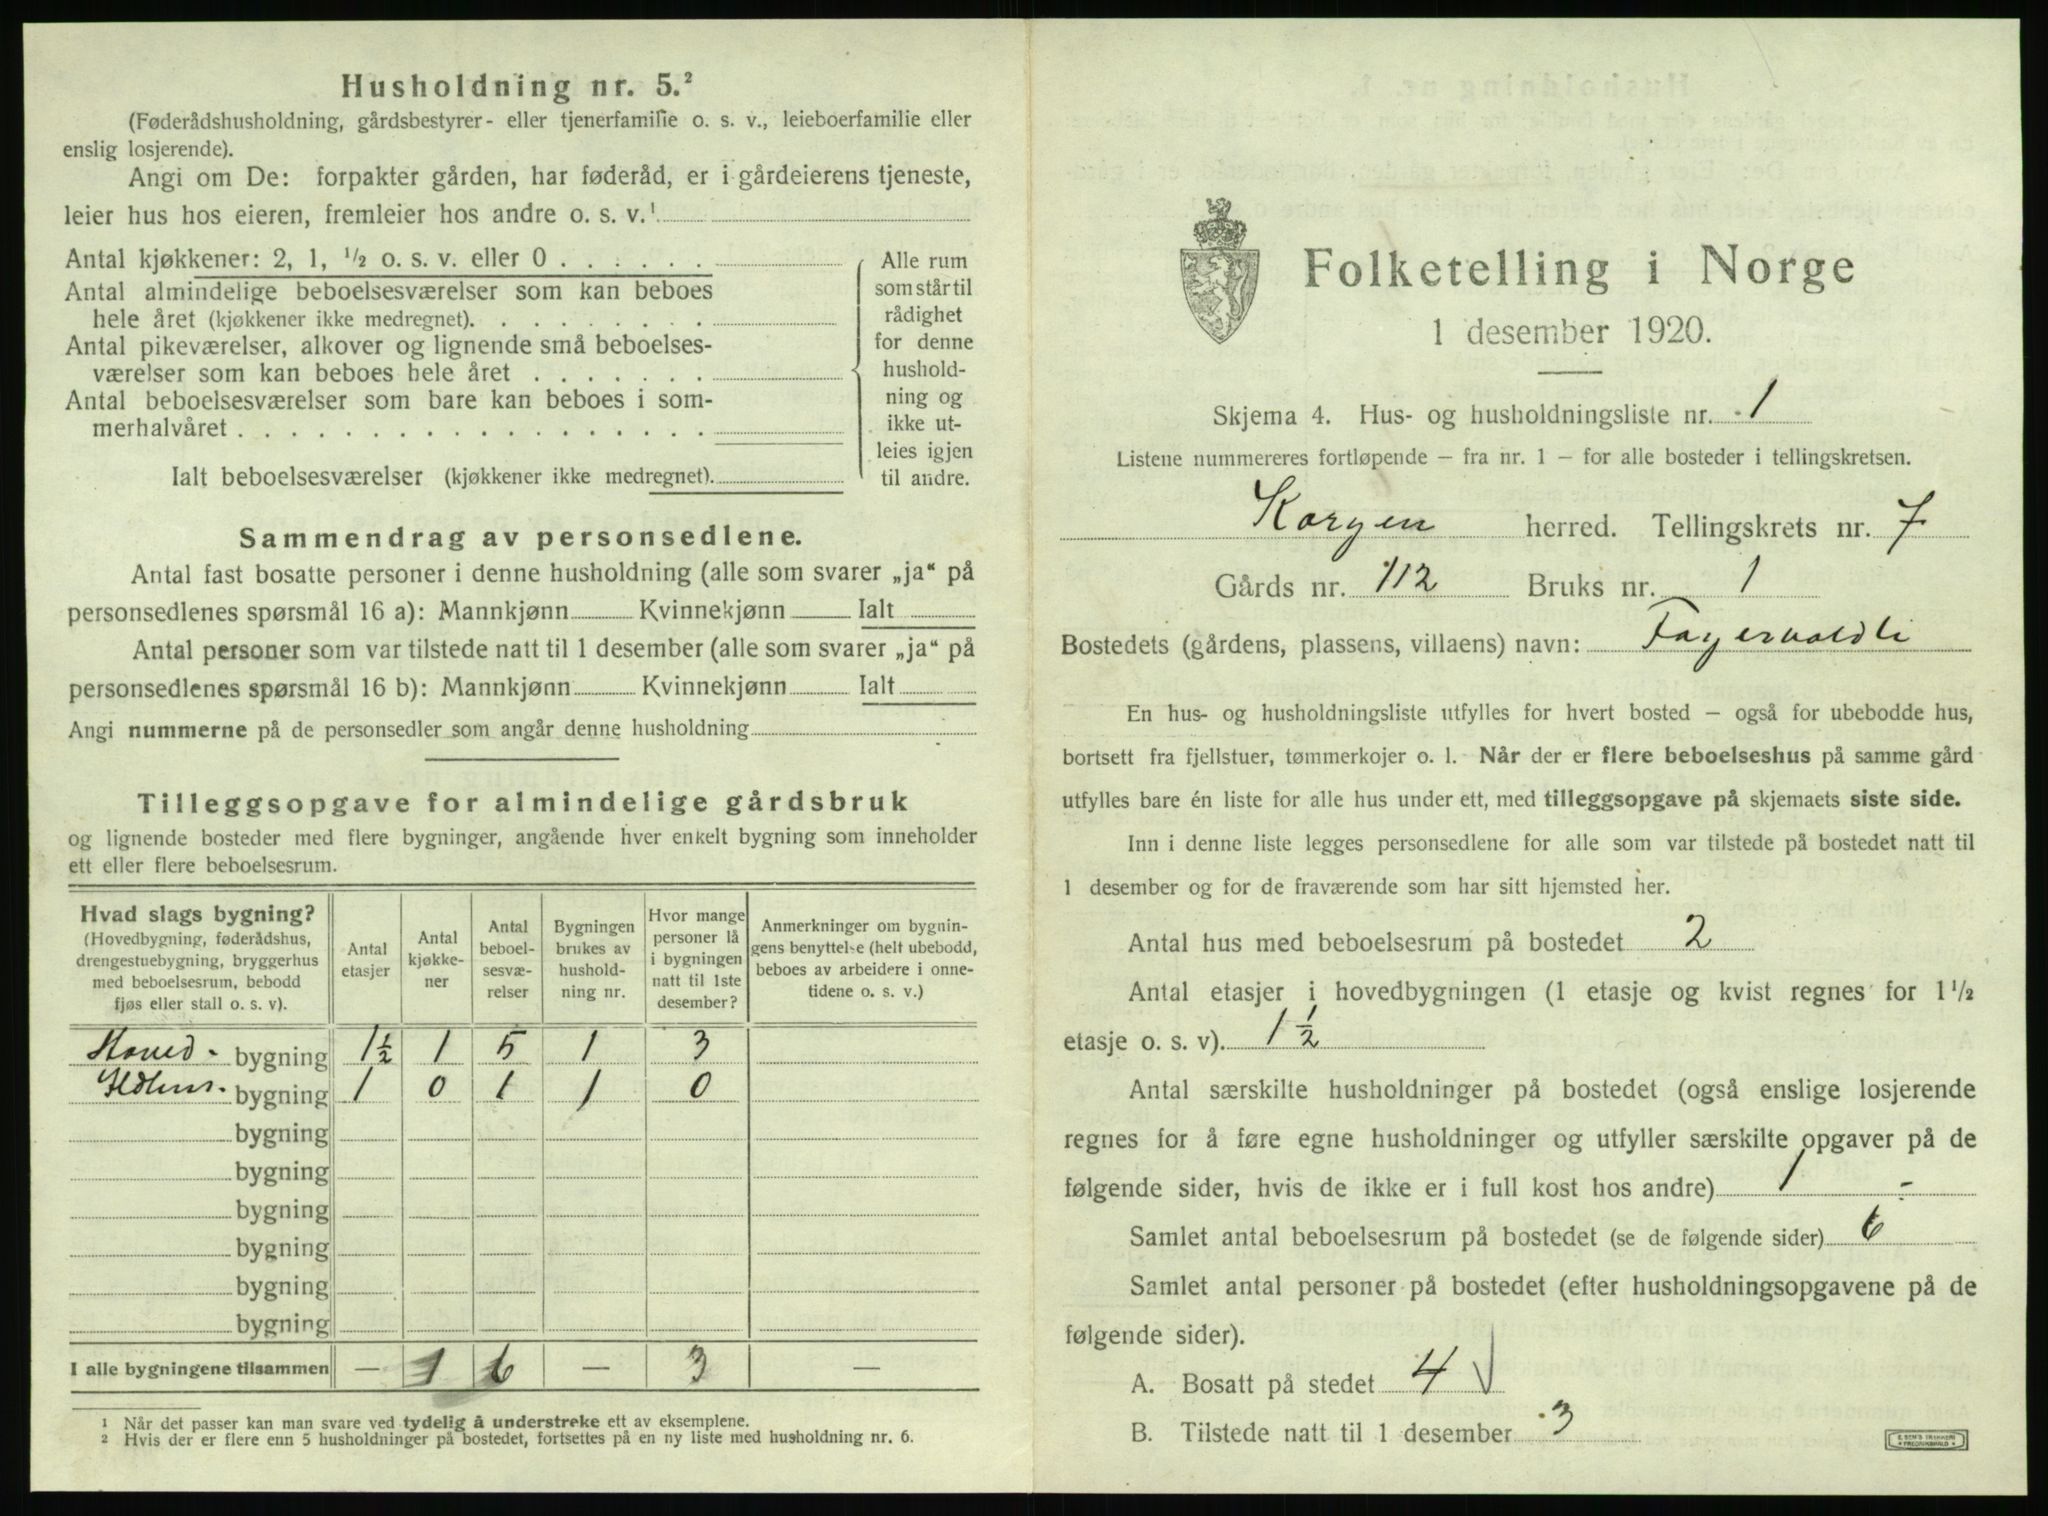 Husholdning nr. 5.²
(Føderådshusholdning, gårdsbestyrer- eller tjenerfamilie o. s. v., leieboerfamilie eller
enslig losjerende).
Angi om De: forpakter gården, har føderåd, er i gårdeierens tjeneste,
leier hus hos eieren, fremleier hos andre o. s. v.¹
Antal kjøkkener: 2, 1, ½ o. s. v. eller 0 . . . . . .
Antal almindelige beboelsesværelser som kan beboes
hele året (kjøkkener ikke medregnet). . . . . . . . .
Antal pikeværelser, alkover og lignende små beboelses-
værelser som kan beboes hele året . . . . . . .
Antal beboelsesværelser som bare kan beboes i som-
merhalvåret . . . . . . . . . . . . . . . . . .
Ialt beboelsesværelser (kjøkkener ikke medregnet).
Alle rum
som står til
rådighet
for denne
hushold-
ning og
ikke ut-
leies igjen
til andre.
Sammendrag av personsedlene.
Antal fast bosatte personer i denne husholdning (alle som svarer „ja“ på
personsedlenes spørsmål 16 a): Mannkjønn Kvinnekjønn Ialt
Antal personer som var tilstede natt til 1 desember (alle som svarer „ja“ på
personsedlenes spørsmål 16 b): Mannkjønn Kvinnekjønn Ialt
Angi nummerne på de personsedler som angår denne husholdning
Tilleggsopgave for almindelige gårdsbruk
og lignende bosteder med flere bygninger, angående hver enkelt bygning som inneholder
ett eller flere beboelsesrum.
Hvad slags bygning?
(Hovedbygning, føderådshus,
drengestuebygning, bryggerhus
med beboelsesrum, bebodd
fjøs eller stall o. s. v).
Antal
etasjer
Antal
kjøkke-
ner
Antal
beboel-
sesvæ-
relser
Bygningen
brukes av
hushold-
ning nr.
Hvor mange
personer lå
i bygningen
natt til 1ste
desember?
Anmerkninger om bygnin-
gens benyttelse (helt ubebodd,
beboes av arbeidere i onne-
tidene o. s. v.)
Hoved- bygning 1½ 1 5 1 3
Ildhus- bygning 1 0 1 1 0
bygning
bygning
bygning
bygning
bygning
bygning
I alle bygningene tilsammen — 1 6 — 3 —
¹ Når det passer kan man svare ved tydelig å understreke ett av eksemplene.
² Hvis der er flere enn 5 husholdninger på bostedet, fortsettes på en ny liste med husholdning nr. 6.
Folketelling i Norge
1 desember 1920.
Skjema 4. Hus- og husholdningsliste nr. 1
Listene nummereres fortløpende – fra nr. 1 – for alle bosteder i tellingskretsen.
Korgen herred. Tellingskrets nr. 7
Gårds nr. 112 Bruks nr. 1
Bostedets (gårdens, plassens, villaens) navn: Fagervoldli
En hus- og husholdningsliste utfylles for hvert bosted – også for ubebodde hus,
bortsett fra fjellstuer, tømmerkojer o. l. Når der er flere beboelseshus på samme gård
utfylles bare én liste for alle hus under ett, med tilleggsopgave på skjemaets siste side.
Inn i denne liste legges personsedlene for alle som var tilstede på bostedet natt til
1 desember og for de fraværende som har sitt hjemsted her.
Antal hus med beboelsesrum på bostedet 2
Antal etasjer i hovedbygningen (1 etasje og kvist regnes for 1½
etasje o. s. v). 1½
Antal særskilte husholdninger på bostedet (også enslige losjerende
regnes for å føre egne husholdninger og utfyller særskilte opgaver på de
følgende sider, hvis de ikke er i full kost hos andre) 1 -
Samlet antal beboelsesrum på bostedet (se de følgende sider) 6
Samlet antal personer på bostedet (efter husholdningsopgavene på de
følgende sider).
A. Bosatt på stedet 4
B. Tilstede natt til 1 desember 3